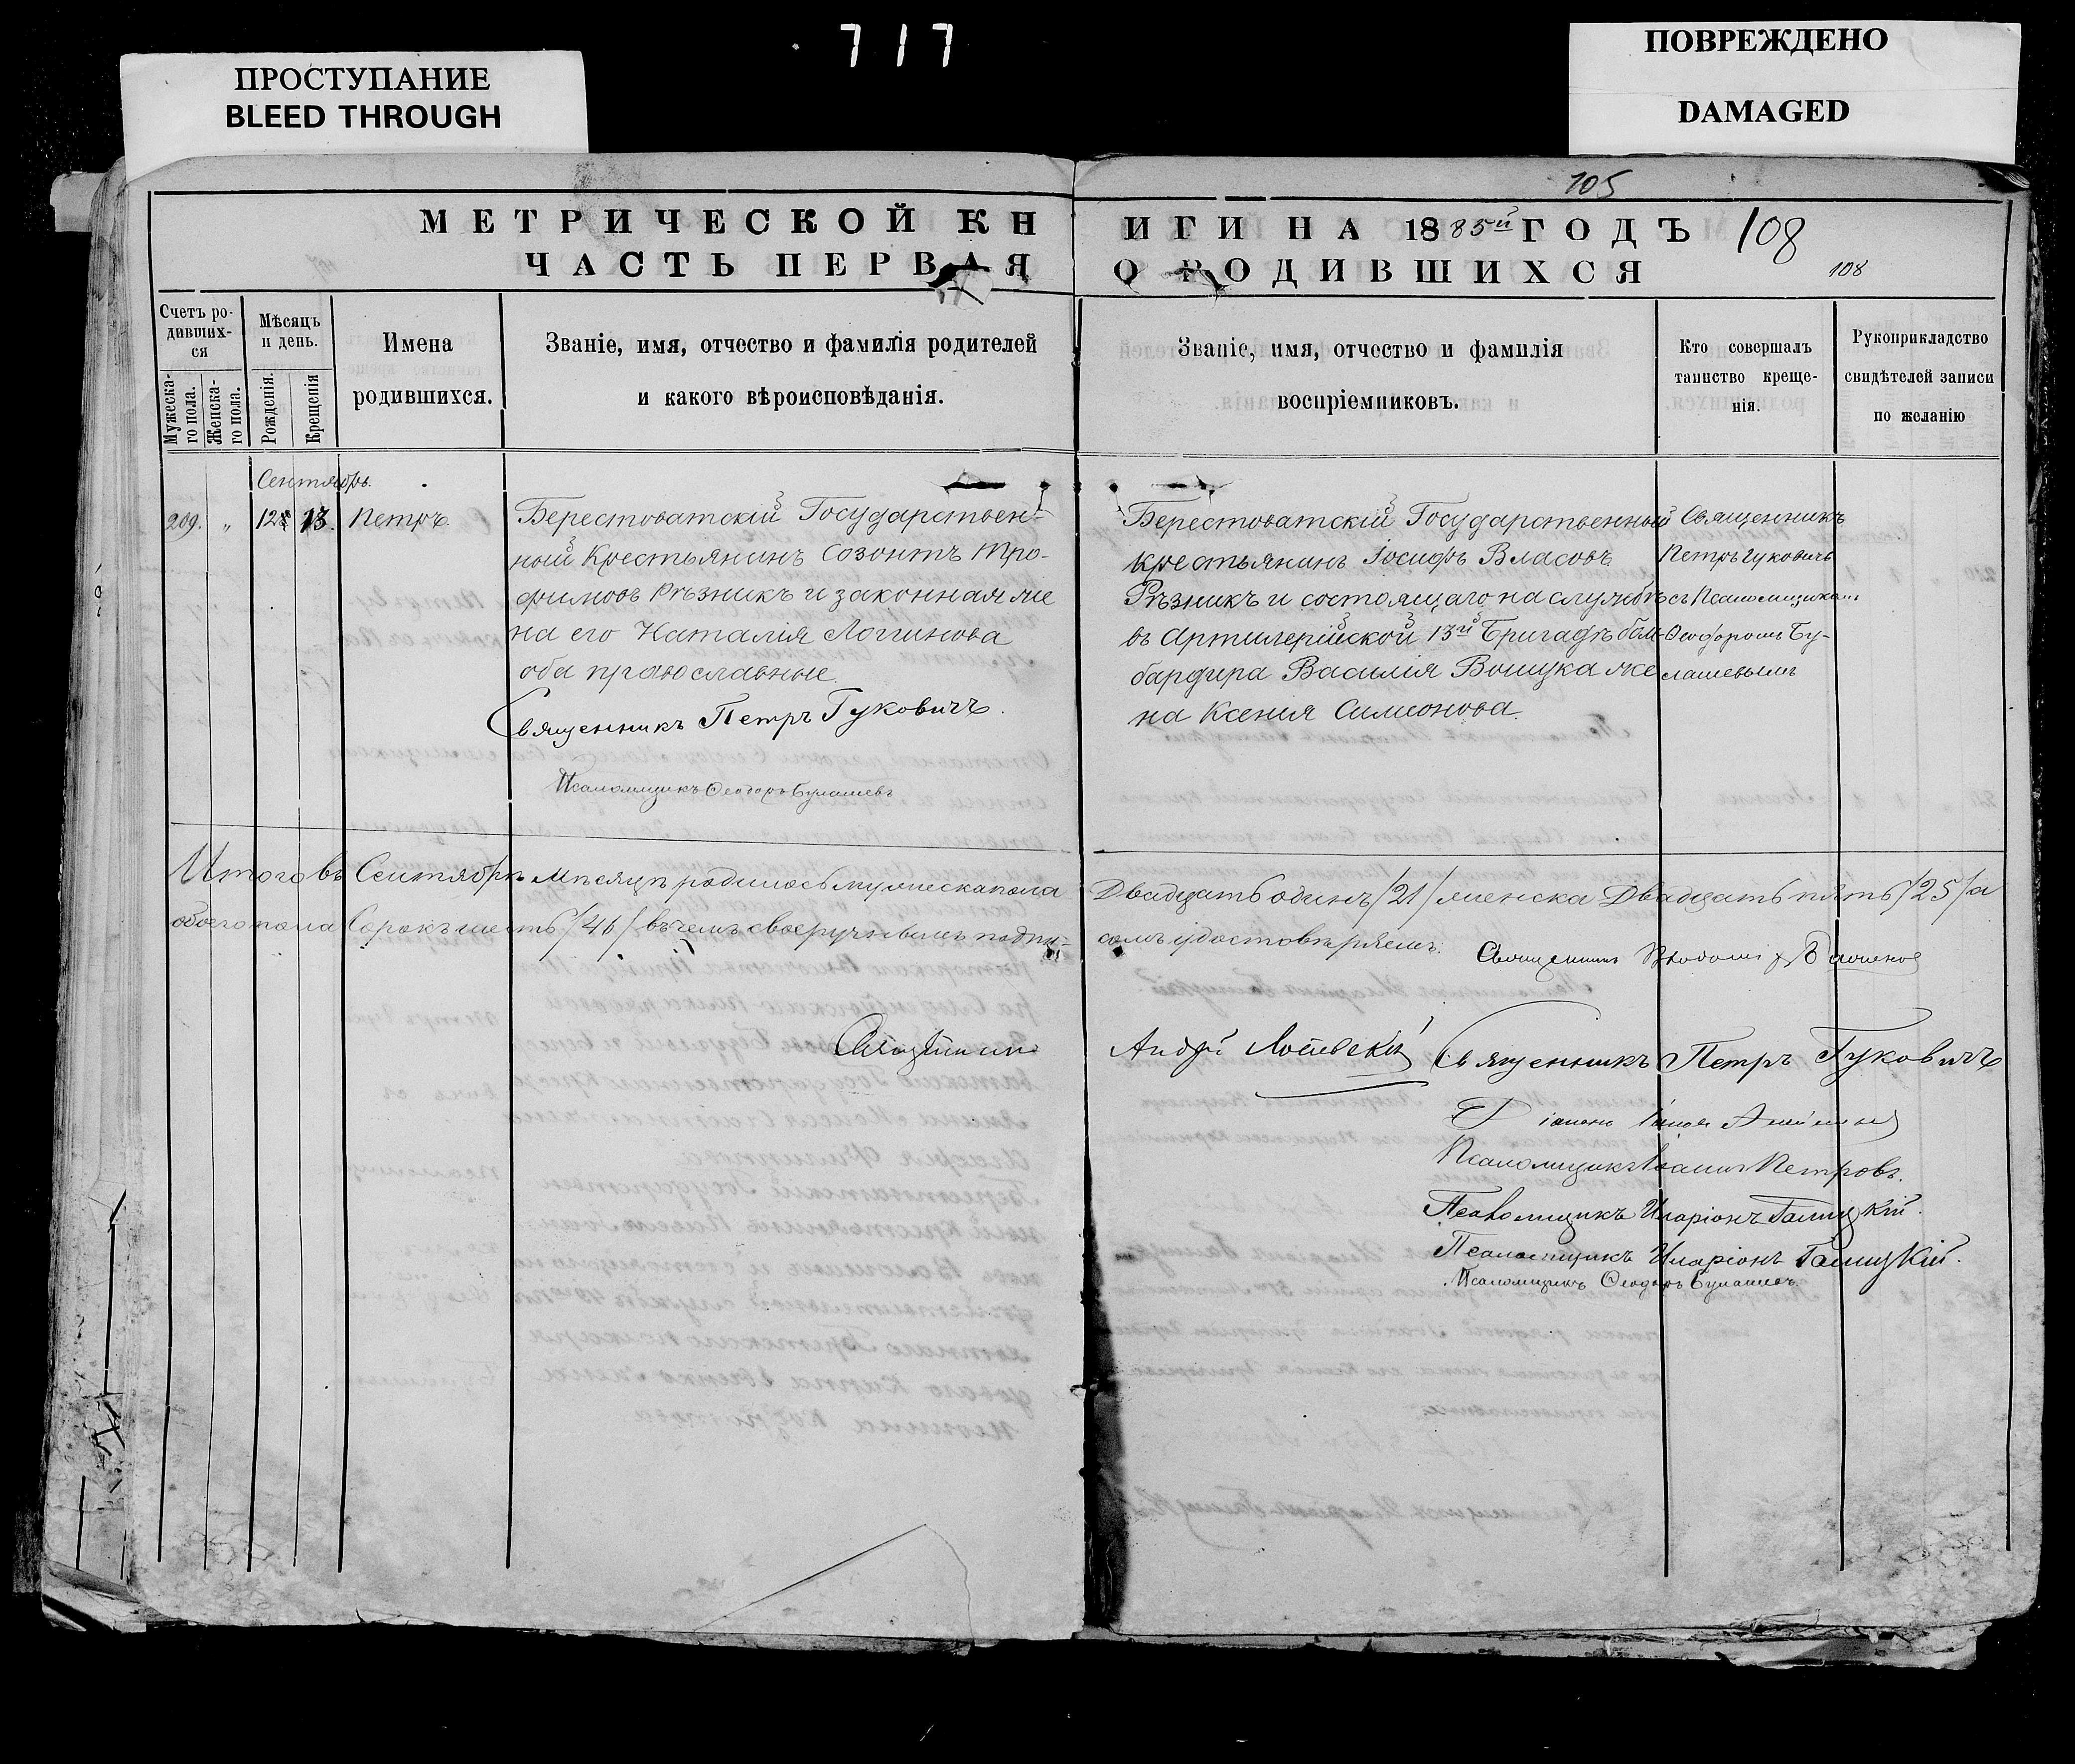 717
ПРОСТУПАНИЕ
BLEED THROUGH
ПОВРЕЖДЕНО
DAMAGED
105
МЕТРИЧЕСКОЙ КНИГИ НА 1885й ГОДЪ
108
ЧАСТЬ ПЕРВАЯ О РОДИВШИХСЯ
108
Счетъ ро-
дивших-
ся
Мужеска-
го пола.
Женска-
го пола.
Мѣсяцъ
и день.
Рожденія.
Крещенія
Имена
родившихся.
Званіе, имя, отчество и фамилія родителей
и какого вѣроисповѣданія.
Званіе, имя, отчество и фамилія
воспріемниковъ.
Кто совершалъ
таинство креще-
нія.
Рукоприкладство
свидѣтелей записи
по желанію
Сентябрь.
209. „ 12 13. Петръ.
Берестоватскій Государствен-
ный Крестьянинъ Созонтъ Тро-
фимовъ Рѣзникъ и законная же
на его Наталія Логгинова
оба православные.
Священникъ Петръ Гуковичъ.
Псаломщикъ Ѳеодоръ Булашевъ
Берестоватскій Государственный
крестьянинъ Іосифъ Власовъ
Рѣзникъ и состоящаго на службѣ
въ Артилерійской 13й Бригадѣ бом-
бардира Василія Воицка же
на Ксенія Симеонова.
Священникъ
Петръ Гуковичъ
съ Псаломщикомъ
Ѳеодоромъ Бу-
лашевымъ
Итого въ Сентябрѣ мѣсяцѣ родилось мужеска пола Двадцать одинъ /21/ женска Двадцать пять /25/ а
обоего пола Сорокъ шесть /46/ въ чемъ своеручнымъ подпи-
сомъ удостовѣряемъ:
Священникъ
Священникъ Андрей
Священникъ Петръ Гуковичъ
Псаломщикъ Іоаннъ Петровъ.
Псаломщикъ Иларіонъ Галицкій.
Псаломщикъ Иларіонъ Галицкій.
Псаломщикъ Ѳеодоръ Булашевъ